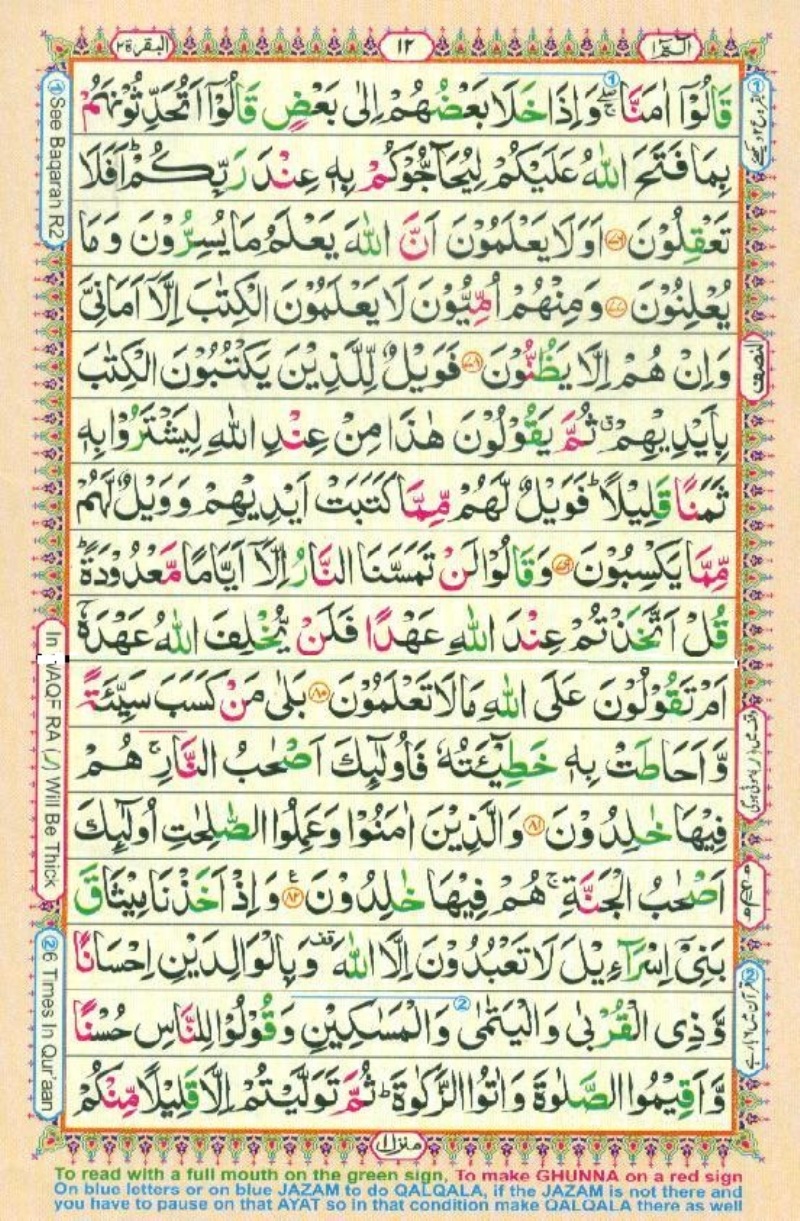 الٓمّٓ ١
١٢
البقرة ٢
قَالُوْۤا اٰمَنَّا ۖۚ وَ اِذَا خَلَا بَعْضُهُمْ اِلٰى بَعْضٍ قَالُوْۤا اَتُحَدِّثُوْنَهُمْ
بِمَا فَتَحَ اللّٰهُ عَلَيْكُمْ لِيُحَآجُّوْكُمْ بِهٖ عِنْدَ رَبِّكُمْ ؕ اَفَلَا
تَعْقِلُوْنَ ﴿٧٦﴾ اَوَلَا يَعْلَمُوْنَ اَنَّ اللّٰهَ يَعْلَمُ مَا يُسِرُّوْنَ وَ مَا
يُعْلِنُوْنَ ﴿٧٧﴾ وَ مِنْهُمْ اُمِّيُّوْنَ لَا يَعْلَمُوْنَ الْكِتٰبَ اِلَّاۤ اَمَانِيَّ
وَ اِنْ هُمْ اِلَّا يَظُنُّوْنَ ﴿٧٨﴾ فَوَيْلٌ لِّلَّذِيْنَ يَكْتُبُوْنَ الْكِتٰبَ
بِاَيْدِيْهِمْ ۗ ثُمَّ يَقُوْلُوْنَ هٰذَا مِنْ عِنْدِ اللّٰهِ لِيَشْتَرُوْا بِهٖ
ثَمَنًا قَلِيْلًا ؕ فَوَيْلٌ لَّهُمْ مِّمَّا كَتَبَتْ اَيْدِيْهِمْ وَ وَيْلٌ لَّهُمْ
مِّمَّا يَكْسِبُوْنَ ﴿٧٩﴾ وَ قَالُوْا لَنْ تَمَسَّنَا النَّارُ اِلَّاۤ اَيَّامًا مَّعْدُوْدَةً ؕ
قُلْ اَتَّخَذْتُمْ عِنْدَ اللّٰهِ عَهْدًا فَلَنْ يُّخْلِفَ اللّٰهُ عَهْدَهٗۤ
اَمْ تَقُوْلُوْنَ عَلَى اللّٰهِ مَا لَا تَعْلَمُوْنَ ﴿٨٠﴾ بَلٰى مَنْ كَسَبَ سَيِّئَةً
وَّ اَحَاطَتْ بِهٖ خَطِيْٓـَٔتُهٗ فَاُولٰٓئِكَ اَصْحٰبُ النَّارِ ۚ هُمْ
فِيْهَا خٰلِدُوْنَ ﴿٨١﴾ وَ الَّذِيْنَ اٰمَنُوْا وَ عَمِلُوا الصّٰلِحٰتِ اُولٰٓئِكَ
اَصْحٰبُ الْجَنَّةِ ۚ هُمْ فِيْهَا خٰلِدُوْنَ ﴿٨٢﴾ ع وَ اِذْ اَخَذْنَا مِيْثَاقَ
بَنِيْۤ اِسْرَآءِيْلَ لَا تَعْبُدُوْنَ اِلَّا اللّٰهَ قف وَ بِالْوَالِدَيْنِ اِحْسَانًا
وَّ ذِي الْقُرْبٰى وَ الْيَتٰمٰى وَ الْمَسٰكِيْنِ وَ قُوْلُوْا لِلنَّاسِ حُسْنًا
وَّ اَقِيْمُوا الصَّلٰوةَ وَ اٰتُوا الزَّكٰوةَ ؕ ثُمَّ تَوَلَّيْتُمْ اِلَّا قَلِيْلًا مِّنْكُمْ
النصف
منزل ١
① See Baqarah R2
In WAQF RA (ر) Will Be Thick
② 6 Times In Qur'aan
To read with a full mouth on the green sign, To make GHUNNA on a red sign
On blue letters or on blue JAZAM to do QALQALA, if the JAZAM is not there and
you have to pause on that AYAT so in that condition make QALQALA there as well